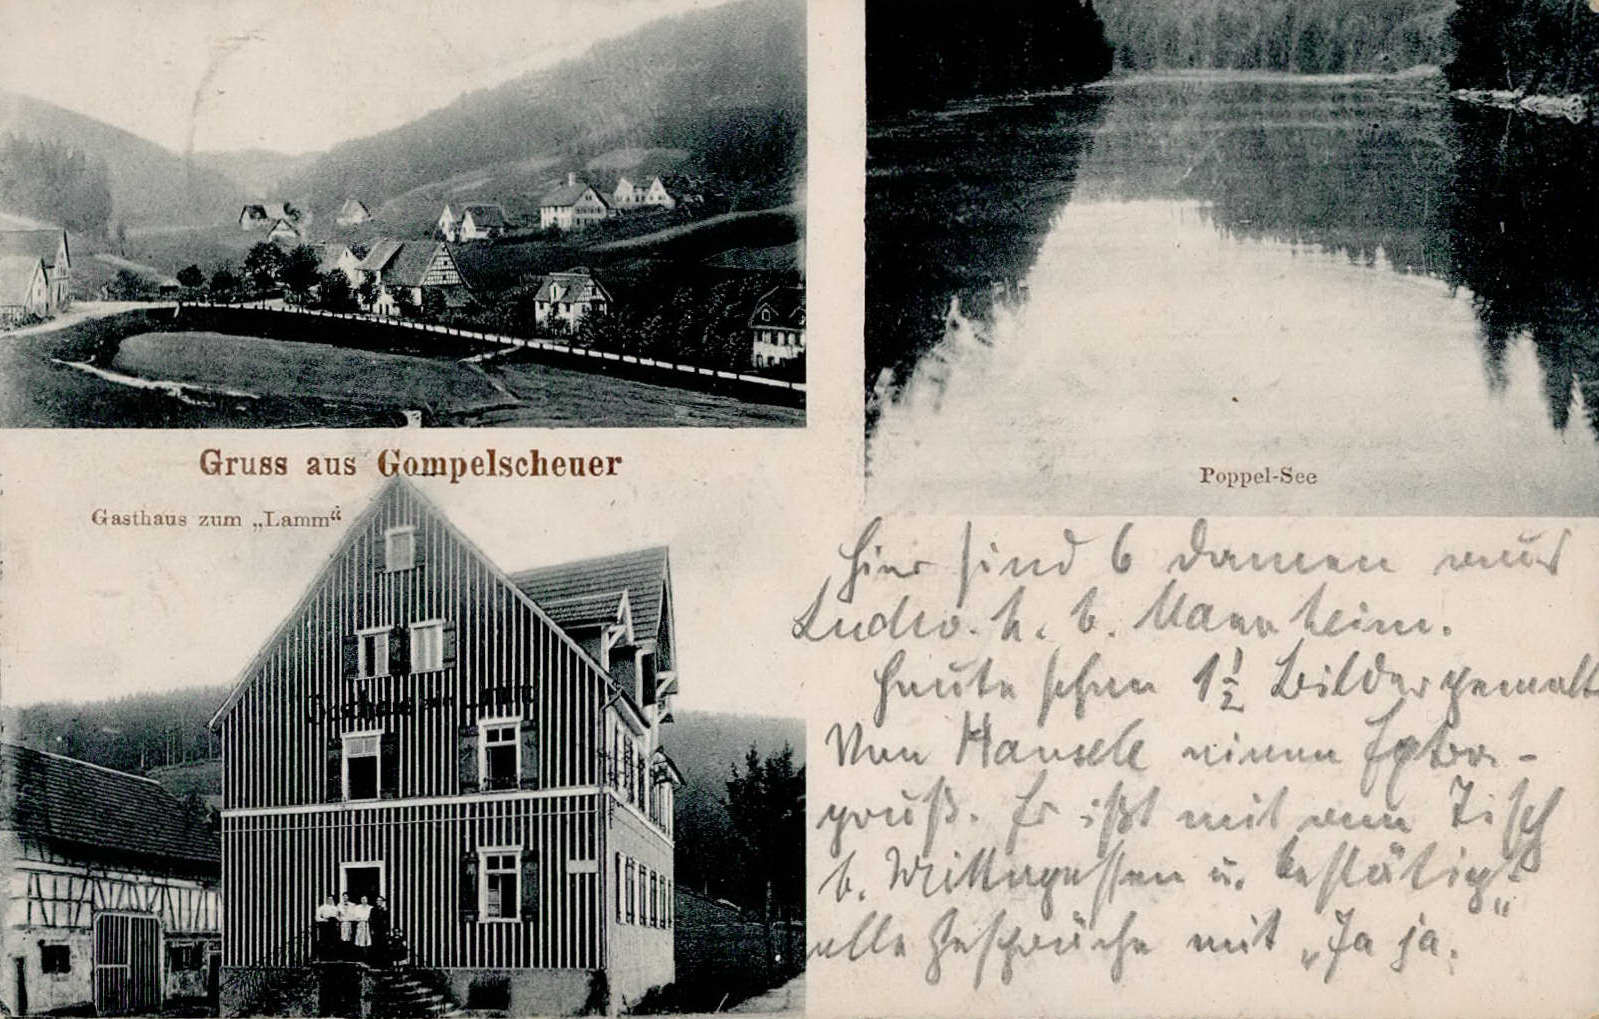 Gruss aus Gompelscheuer
Gasthaus zum „Lamm“
Poppel-See
Hier sind 6 Damen aus
Ludw. h. b. Mannheim.
Heute schon 1½ Bilder gemalt
Von Hansele einen
gruß. Er ißt mit am Tisch
b. Mittagessen u. bestätigt
alle Gespräche mit „Ja ja.“